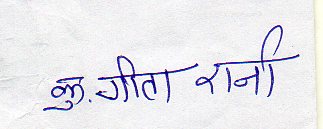 कु. गीता रानी